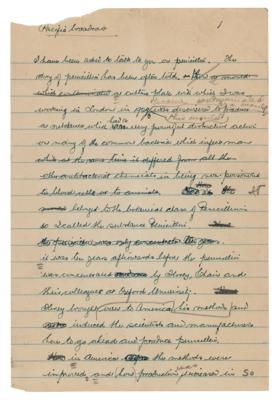 Pacific broadcast
1
I have been asked to talk to you on penicillin. The
story of penicillin has been often told.
which contaminated a culture plate with which I was
working in London in discovered to produce
a substance which had a very powerful destructive action
on many of the common bacteria which infect man
while at the same time it differed from all the
other antibacterial chemicals in being non poisonous
to blood cells or to animals.
belonged to the botanical class of Penicillium
so I called the substance Penicillin.
It was ten years afterwards before the penicillin
was concentrated by Florey, Chain and
their colleagues at Oxford University.
Florey brought over to America his methods and
induced the scientists and manufacturers
here to go ahead and produce penicillin.
in America the methods were
improved and production increased in so